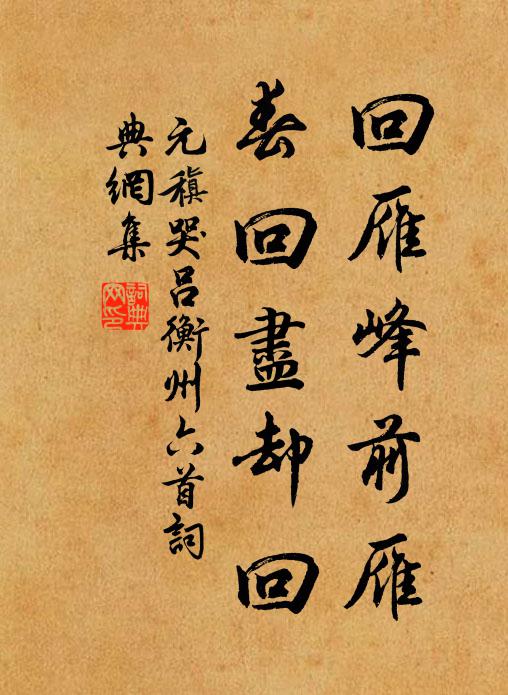 回雁峰前雁
春回盡却回
元稹哭呂衡州六首詞
典網集
詞典
网印